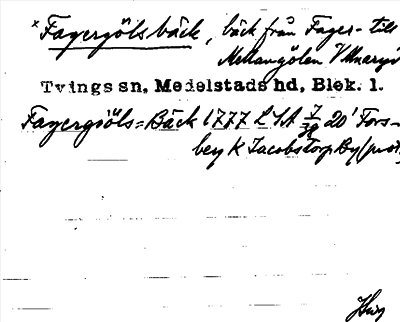 *Fagergölsbäck, bäck från Fager- till
Mellangölen V Mnargö
Tvings sn, Medelstads hd, Blek. l.
Fagergiöls=Bäck 1777 LSA 7/38 20' Fors-
bey K Jacobstorp By (prot.